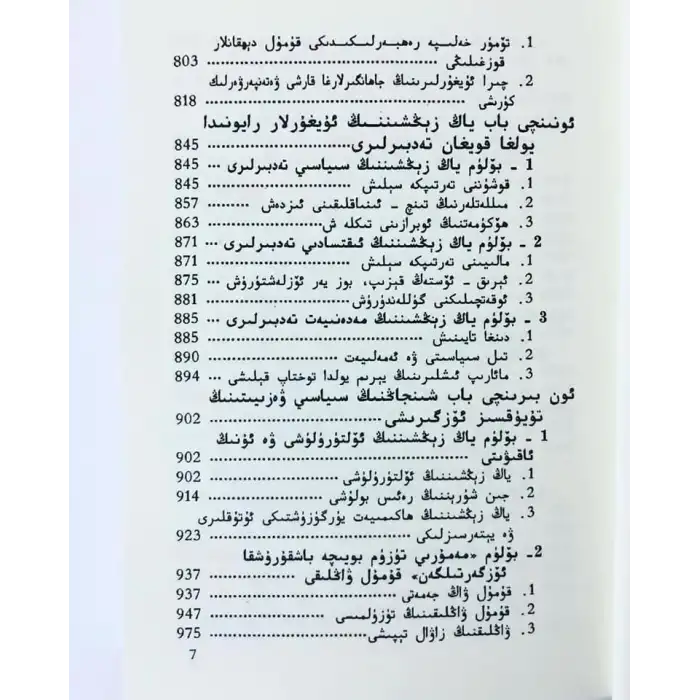 1. تۆمۈر خەلىپە رەھبەرلىكىدىكى قۇمۇل دېھقانلار
قوزغىلىڭى 803
2. چىرا ئۇيغۇرلىرىنىڭ جاھانگىرلارغا قارشى ۋەتەنپەرۋەرلىك
كۈرىشى 818
ئونىنچى باب ياڭ زېڭشىننىڭ ئۇيغۇرلار رايونىدا
يولغا قويغان تەدبىرلىرى 845
1 - بۆلۈم ياڭ زېڭشىننىڭ سىياسىي تەدبىرلىرى 845
1. قوشۇننى تەرتىپكە سېلىش 845
2. مىللەتلەرنىڭ تىنچ - ئىناقلىقىنى ئىزدەش 857
3. ھۆكۈمەتنىڭ ئوبرازىنى تىكلە ش 863
2 - بۆلۈم ياڭ زېڭشىننىڭ ئىقتسادىي تەدبىرلىرى 871
1. مالىيىنى تەرتىپكە سېلىش 871
2. ئېرىق - ئۆستەڭ قېزىپ، بوز يەر ئۆزلەشتۈرۈش 875
3. ئوقەتچىلىكنى گۈللەندۈرۈش 881
3 - بۆلۈم ياڭ زېڭشىننىڭ مەدەنىيەت تەدبىرلىرى 885
1. دىنغا تايىنىش 885
2. تىل سىياسىتى ۋە ئەمەلىيەت 890
3. مائارىپ ئىشلىرىنىڭ يېرىم يولدا توختاپ قېلىشى 894
ئون بىرىنچى باب شىنجاڭنىڭ سىياسىي ۋەزىيىتىنىڭ
تۇيۇقسىز ئۆزگىرىشى 902
1 - بۆلۈم ياڭ زېڭشىننىڭ ئۆلتۈرۈلۈشى ۋە ئۇنىڭ
ئاقىۋىتى 902
1. ياڭ زېڭشىننىڭ ئۆلتۈرۈلۈشى 902
2. جىن شۇرېننىڭ رەئىس بولۇشى 914
3. ياڭ زېڭشىننىڭ ھاكىمىيەت يۈرگۈزۈشتىكى ئۇتۇقلىرى
ۋە يېتەرسىزلىكى 923
2- بۆلۈم «مەمۇرىي تۈزۈم بويىچە باشقۇرۇشقا
ئۆزگەرتىلگەن» قۇمۇل ۋاڭلىقى 937
1. قۇمۇل ۋاڭ جەمەتى 937
2. قۇمۇل ۋاڭلىقىنىڭ تۈزۈلمىسى 947
3. ۋاڭلىقنىڭ زاۋال تېپىشى 975
7